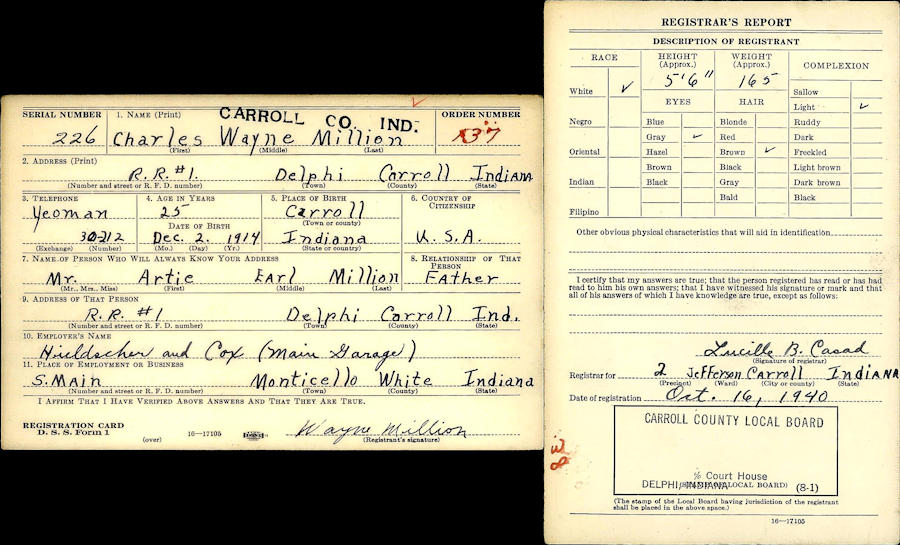 CARROLL CO. IND.
SERIAL NUMBER 1. NAME (Print) ORDER NUMBER
226 Charles Wayne Million
(First) (Middle) (Last)
2. ADDRESS (Print)
R.R. #1. Delphi Carroll Indiana
(Number and street or R. F. D. number) (Town) (County) (State)
3. TELEPHONE 4. AGE IN YEARS 5. PLACE OF BIRTH 6. COUNTRY OF CITIZENSHIP
Yeoman 25 Carroll
DATE OF BIRTH (Town or county)
Dec. 2. 1914 Indiana U.S.A.
(Exchange) (Number) (Mo.) (Day) (Yr.) (State or country)
7. NAME OF PERSON WHO WILL ALWAYS KNOW YOUR ADDRESS 8. RELATIONSHIP OF THAT PERSON
Mr. Artie Earl Million Father
(Mr., Mrs., Miss) (First) (Middle) (Last)
9. ADDRESS OF THAT PERSON
R.R. #1 Delphi Carroll Ind.
(Number and street or R. F. D. number) (Town) (County) (State)
10. EMPLOYER'S NAME
and Cox (Main Garage)
11. PLACE OF EMPLOYMENT OR BUSINESS
S. Main Monticello White Indiana
(Number and street or R. F. D. number) (Town) (County) (State)
I AFFIRM THAT I HAVE VERIFIED ABOVE ANSWERS AND THAT THEY ARE TRUE.
REGISTRATION CARD
D. S. S. Form 1 (over) 16—17105 Wayne Million
(Registrant's signature)
REGISTRAR'S REPORT
DESCRIPTION OF REGISTRANT
RACE HEIGHT (Approx.) WEIGHT (Approx.) COMPLEXION
5'6" 165
White ✓ Sallow
EYES HAIR Light ✓
Negro Blue Blonde Ruddy
Gray ✓ Red Dark
Oriental Hazel Brown ✓ Freckled
Brown Black Light brown
Indian Black Gray Dark brown
Bald Black
Filipino
Other obvious physical characteristics that will aid in identification
I certify that my answers are true; that the person registered has read or has had
read to him his own answers; that I have witnessed his signature or mark and that
all of his answers of which I have knowledge are true, except as follows:
Lucille B. Casad
(Signature of registrar)
Registrar for 2 Jefferson Carroll Indiana
(Precinct) (Ward) (City or county) (State)
Date of registration Oct. 16, 1940
CARROLL COUNTY LOCAL BOARD
% Court House
DELPHI, INDIANA (8-1)
(The stamp of the Local Board having jurisdiction of the registrant
shall be placed in the above space.)
16—17105